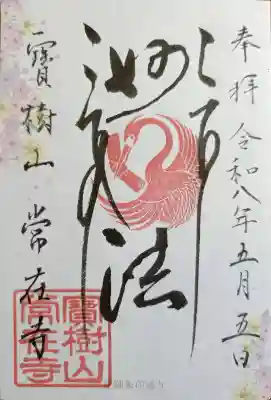 奉拝 令和八年五月五日
妙法
寶樹山 常在寺
寶樹山
常在寺